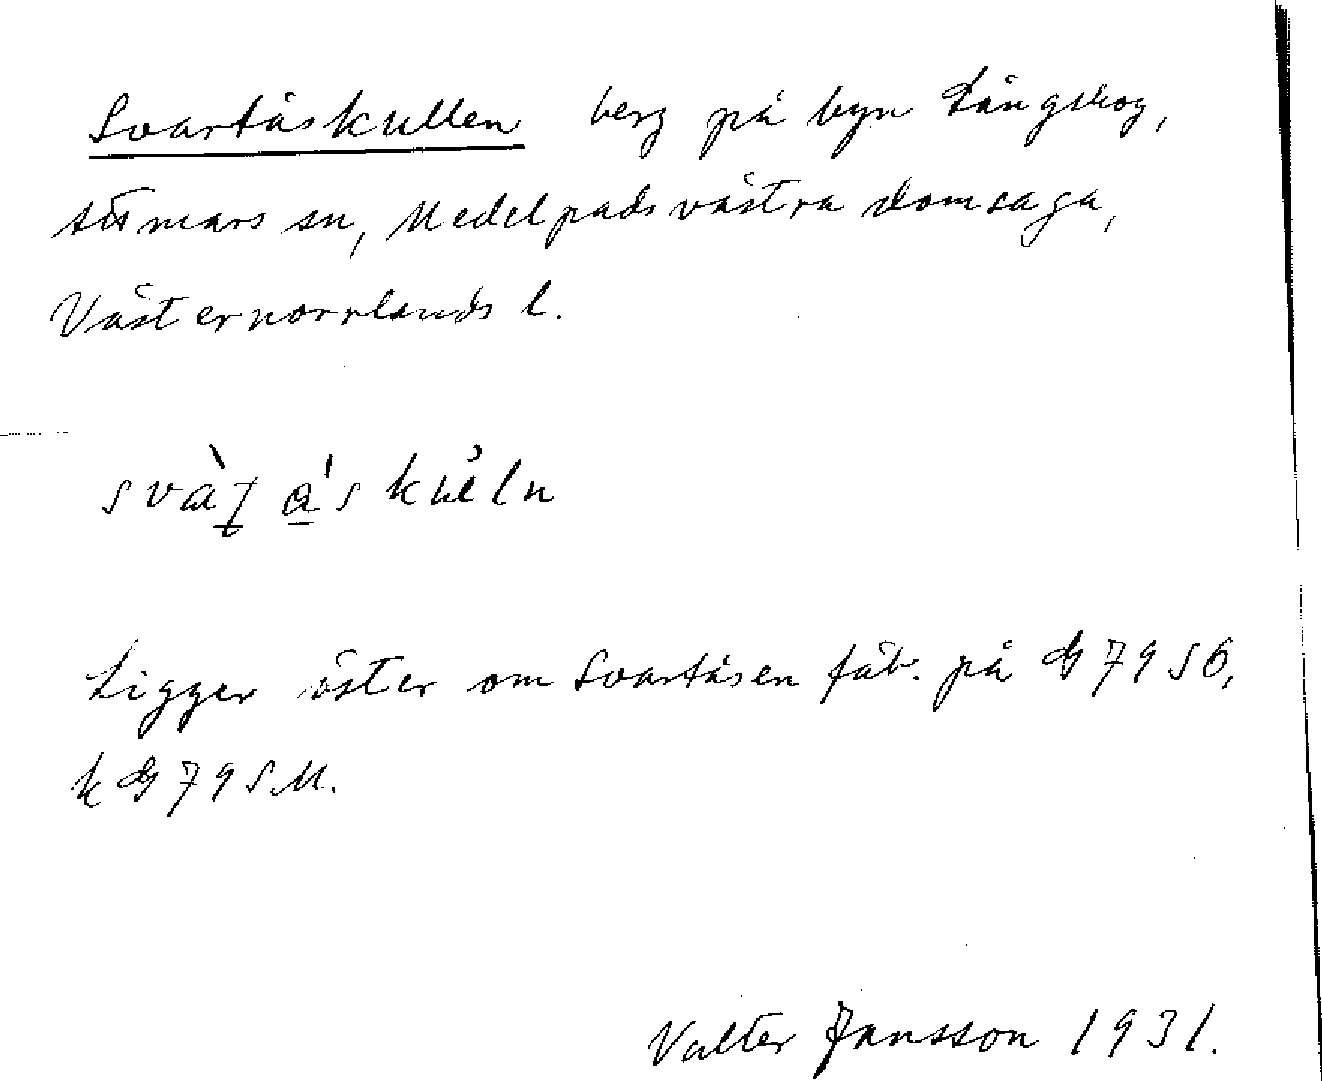 Svartåskullen berg på byn Långskog,
Attmars sn, Medelpads västra domsaga,
Västernorrlands l.
Ligger öster om Svartåsen fäb. på G 79 SO,
k G 79 SM.
Valter Jansson 1931.